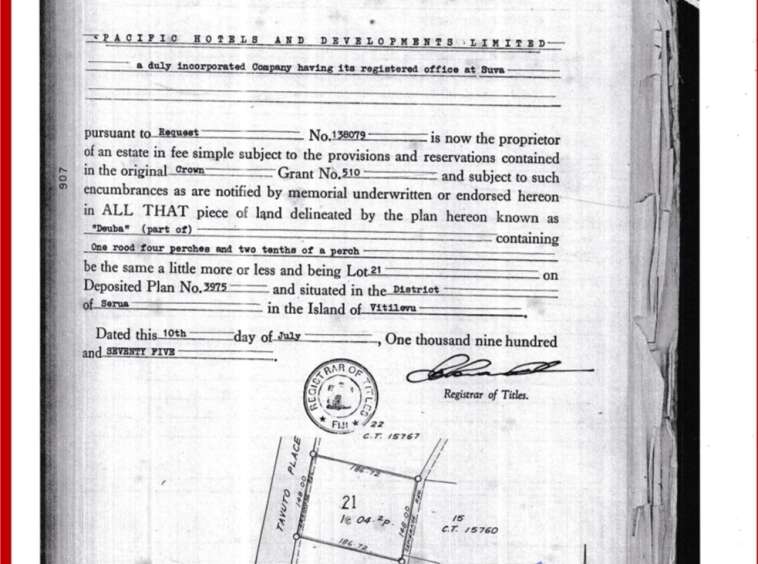 PACIFIC HOTELS AND DEVELOPMENTS LIMITED
a duly incorporated Company having its registered office at Suva
pursuant to Request No. 138079 is now the proprietor
of an estate in fee simple subject to the provisions and reservations contained
in the original Crown Grant No. 510 and subject to such
encumbrances as are notified by memorial underwritten or endorsed hereon
in ALL THAT piece of land delineated by the plan hereon known as
"Deuba" (part of) containing
One rood four perches and two tenths of a perch
be the same a little more or less and being Lot 21 on
Deposited Plan No. 3975 and situated in the District
of Serua in the Island of Vitilevu.
Dated this 10th day of July, One thousand nine hundred
and SEVENTY FIVE.
Registrar of Titles.
REGISTRAR OF TITLES
FIJI
907
22
C.T. 15767
TAVUTO PLACE
186.72
148.00
21
1r 04.2p.
148.00
186.72
15
C.T. 15760